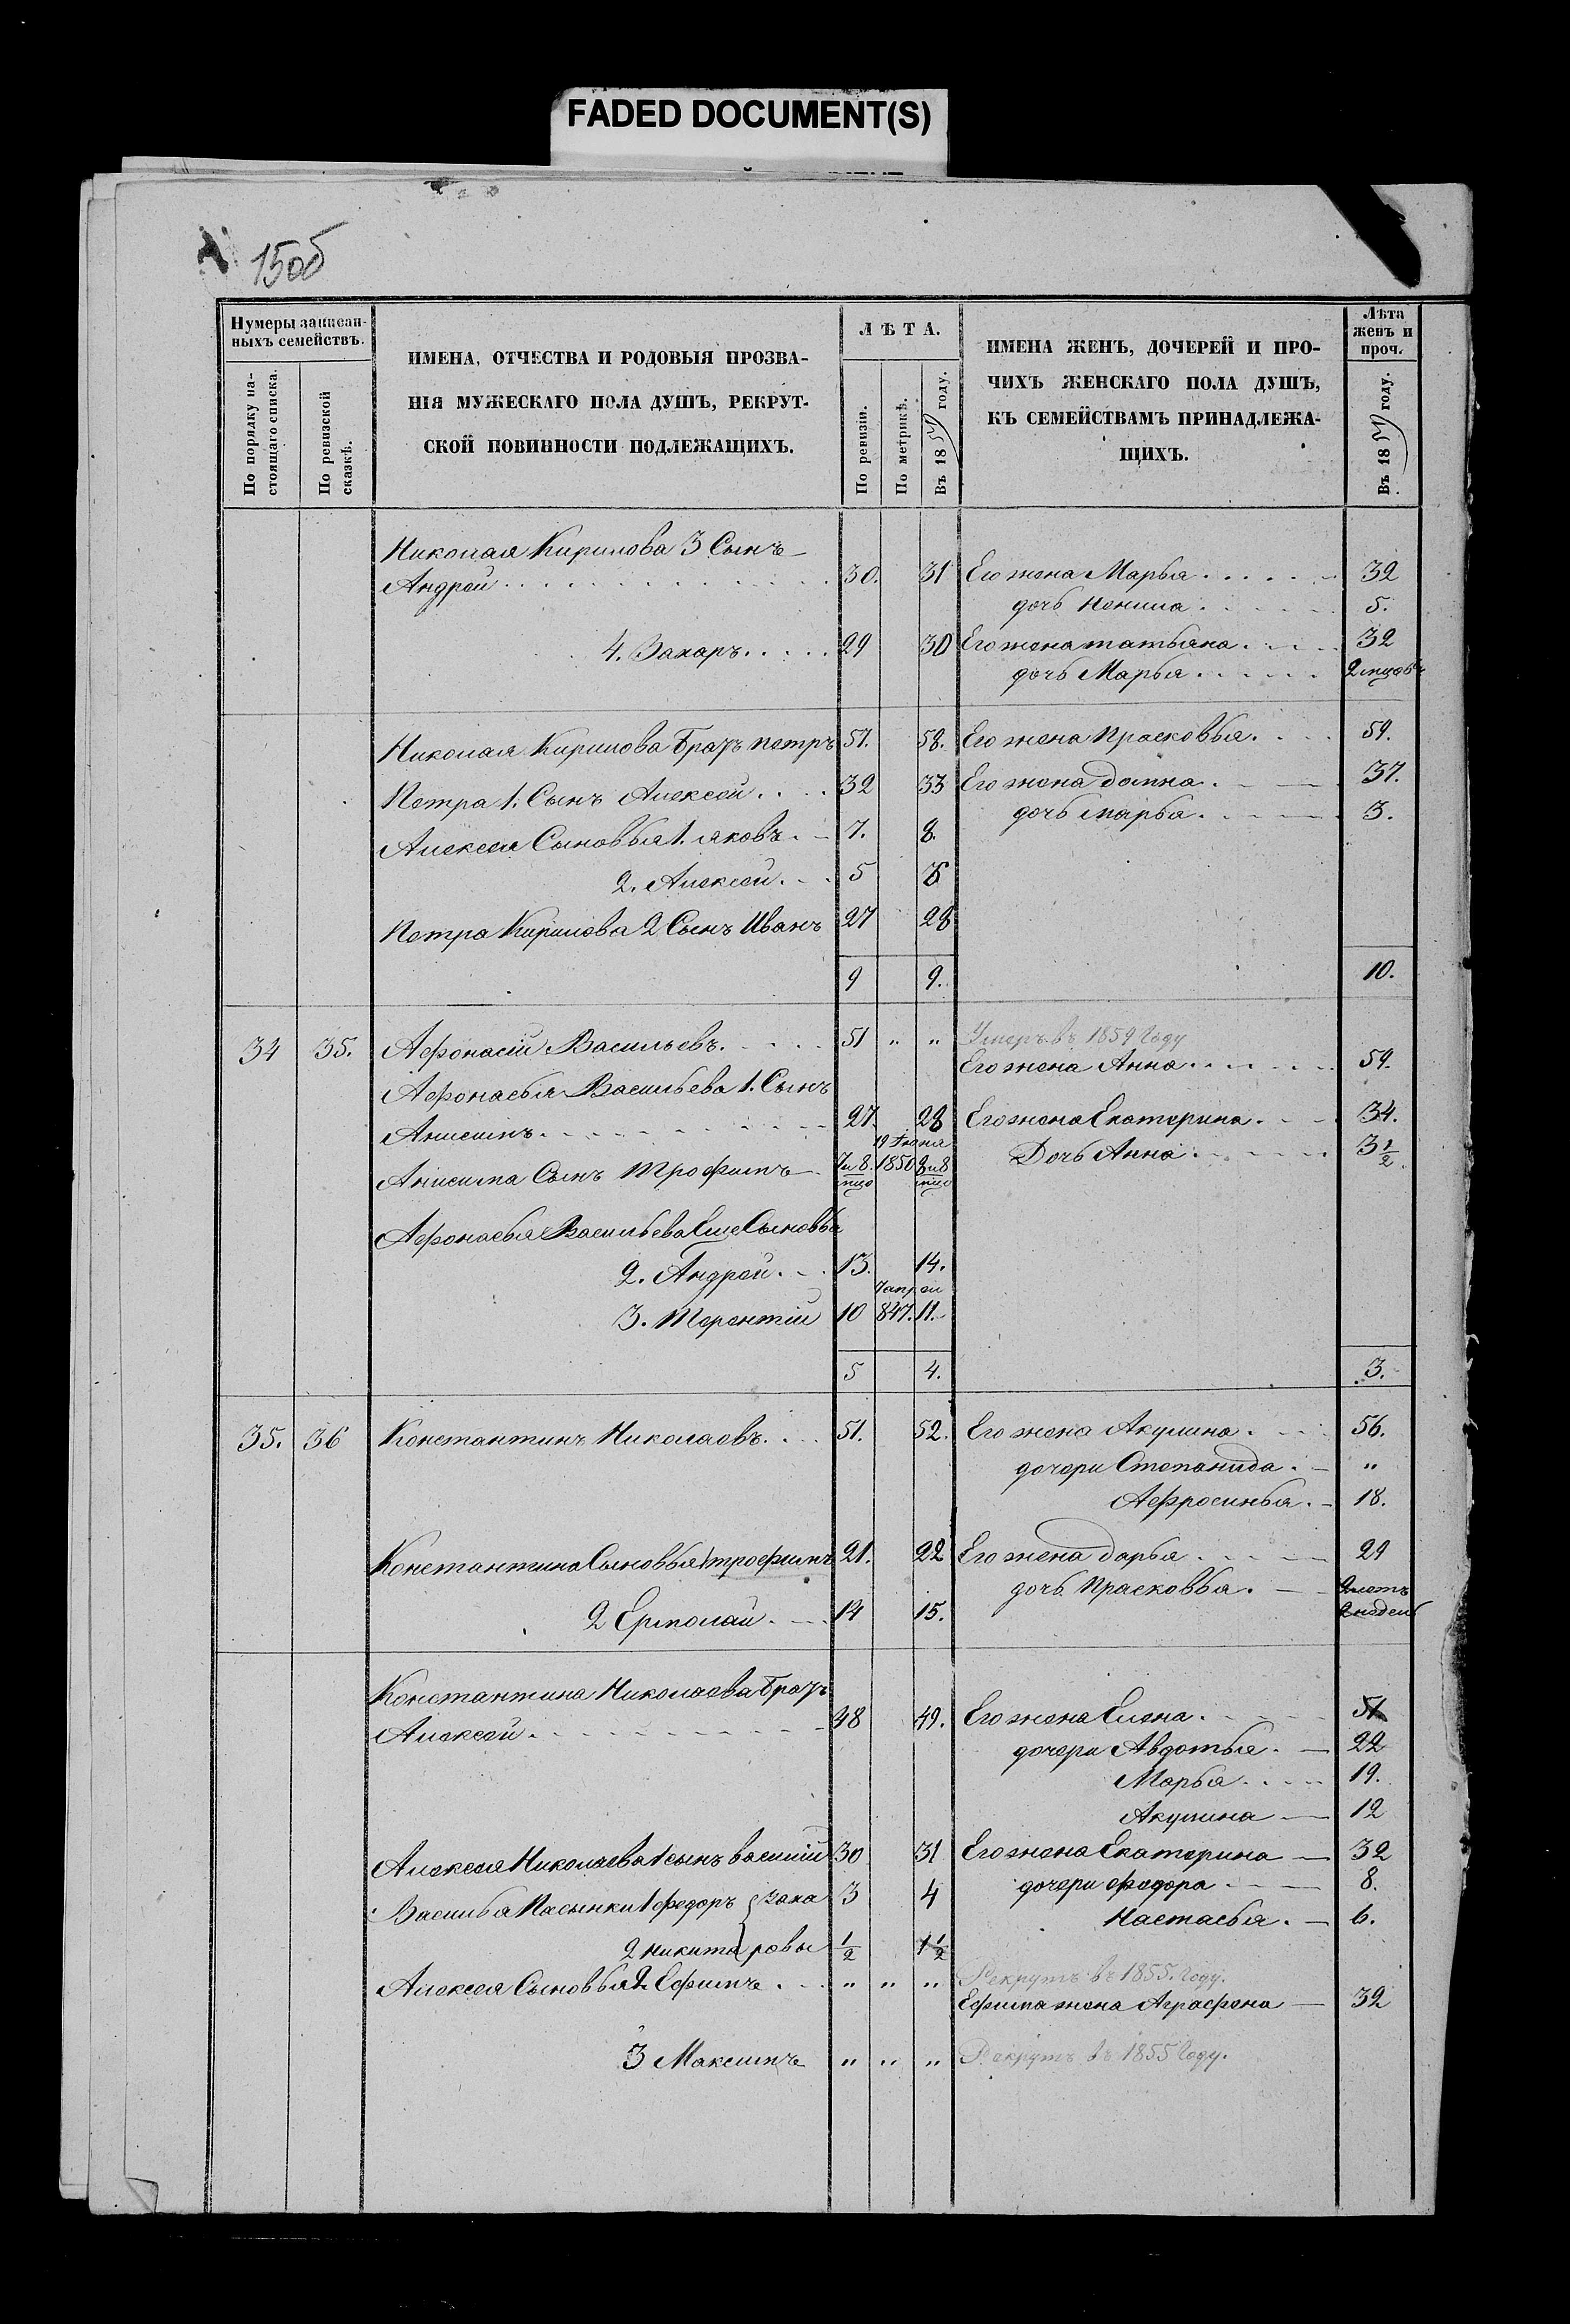 FADED DOCUMENT(S)
150б
Нумеры записан-
ныхъ семействъ.
По порядку на-
стоящаго списка.
По ревизской
сказкѣ.
ИМЕНА, ОТЧЕСТВА И РОДОВЫЯ ПРОЗВА-
НІЯ МУЖЕСКАГО ПОЛА ДУШЪ, РЕКРУТ-
СКОЙ ПОВИННОСТИ ПОДЛЕЖАЩИХЪ.
ЛѢТА.
По ревизіи.
По метрикѣ.
Въ 18 году.
ИМЕНА ЖЕНЪ, ДОЧЕРЕЙ И ПРО-
ЧИХЪ ЖЕНСКАГО ПОЛА ДУШЪ,
КЪ СЕМЕЙСТВАМЪ ПРИНАДЛЕЖА-
ЩИХЪ.
Лѣта
женъ и
проч.
Въ 18 году.
Николая Кирилова 3 Сынъ
Андрей 30. 31 Его жена Марья 32
дочь Ненила 5.
4. Захаръ 29 30 Его жена татьяна 32
дочь Марья
Николая Кирилова братъ петръ 57. 58. Его жена Прасковья 59.
Петра 1. Сынъ Алексей 32 33 Его жена домна 37.
дочь марья 3.
Алексея Сыновья 1. яковъ 7. 8.
2. Алексей 5 6
Петра Кирилова 2 Сынъ Иванъ 27 28
9 9. 10.
34 35. Афонасій Васильевъ 51 " " Умеръ въ 1859 Году
Его жена Анна 59.
Афонасья Васильева 1. Сынъ
Анисимъ 27. 28 Его жена Екатерина 34.
19 Іюня
Анисима Сынъ Трофимъ 7 и 8 мцо 1850 8 и 8 мцо Дочь Анна 3 1/2
Афонасья Васильева Еще Сыновья
2. Андрей 13. 14.
7 апрел
3. Терентій 10 847. 11.
5 4. 3.
35. 36 Константинъ Николаевъ 51. 52. Его жена Акулина 56.
дочери Степанида "
Афросинья 18.
Константина Сыновья 1 трофимъ 21. 22 Его жена дарья 29
дочь Прасковья 2 летъ
2 недел
2 Ермолай 14 15.
Константина Николаева братъ
Алексей 48 49. Его жена Елена 51
дочери Авдотья 22
Марья 19.
Акулина 12
Алексея Николаева 1 сынъ василій 30 31 Его жена Екатерина 32
Василья Пасынки 1 федоръ } заха 3 4 дочери федора 8.
Настасья 6.
2 никита } ровы 1/2 1 1/2
Алексея Сыновья 2 Ефимъ " " " Рекрутъ въ 1855. Году.
Ефима жена Аграфена 32
3 Максимъ " " " Рекрутъ въ 1855 Году.